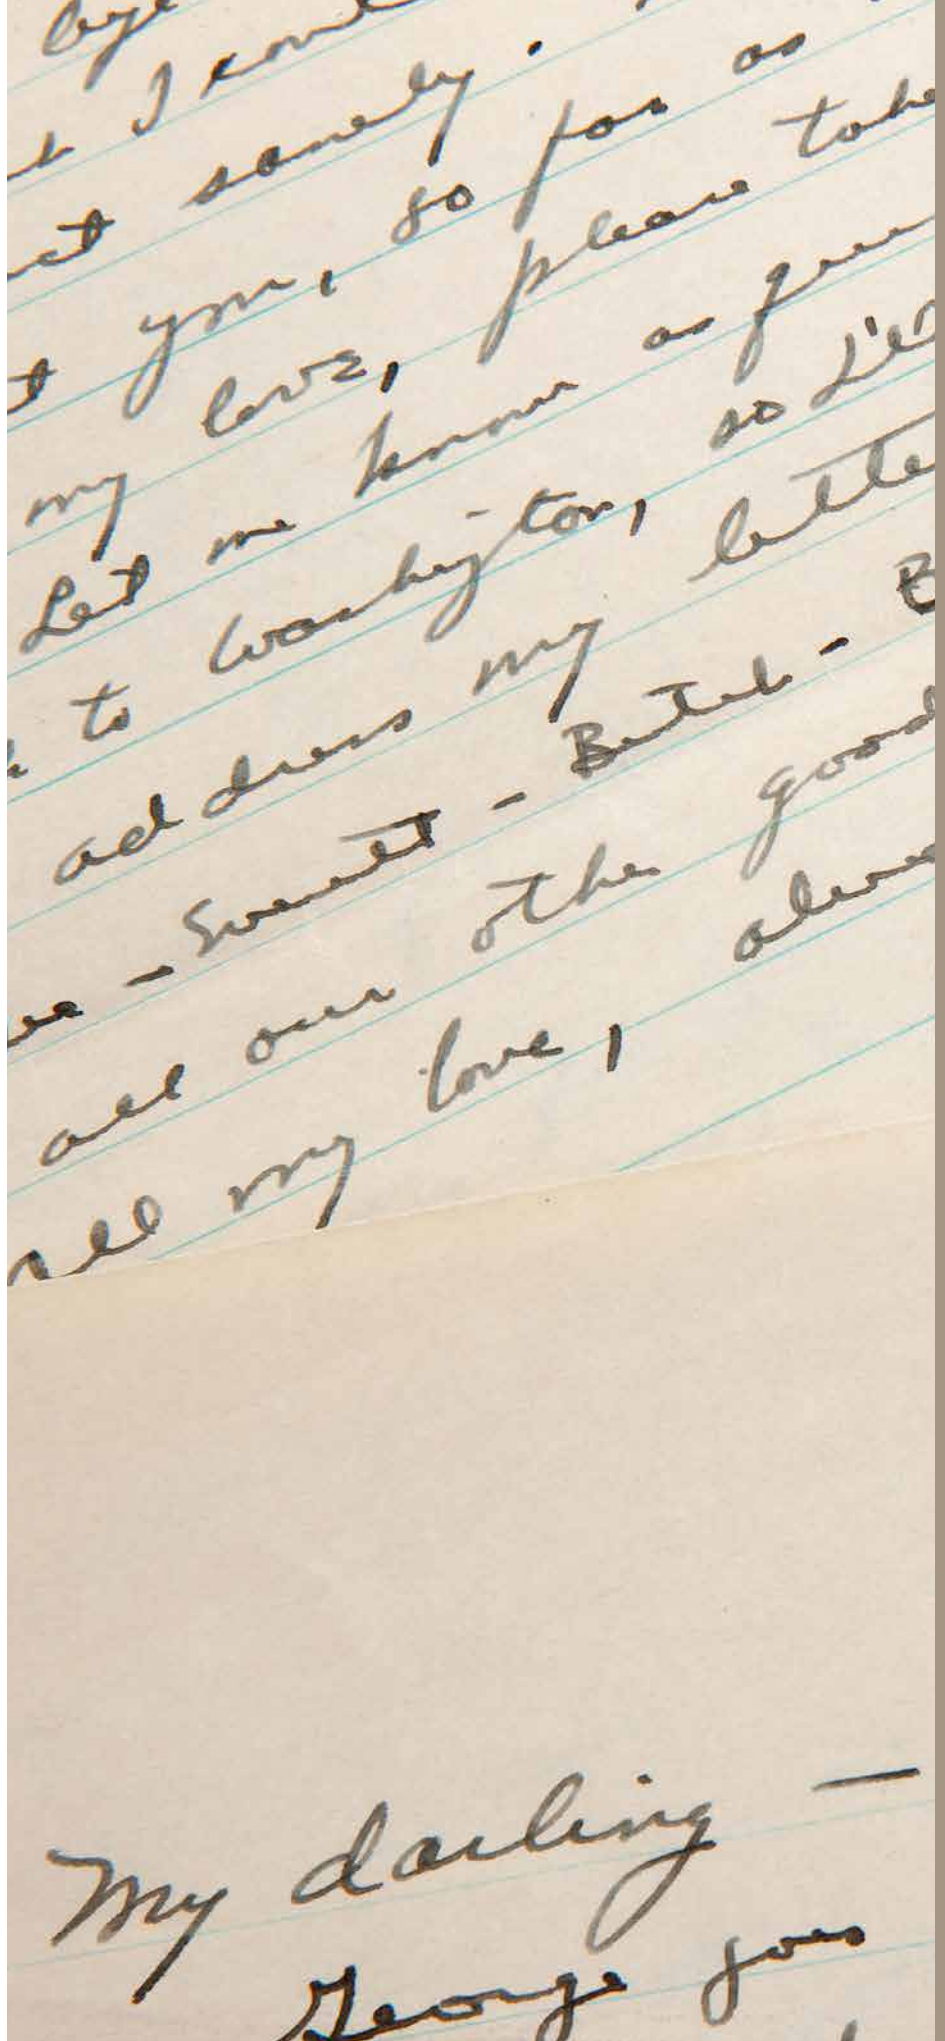 I
sanely.
you, so far as
my love, please take
Let me know as
to Washington, so
address my
- Sweets - Butch -
all our other good
all my love,
My darling —
George goes